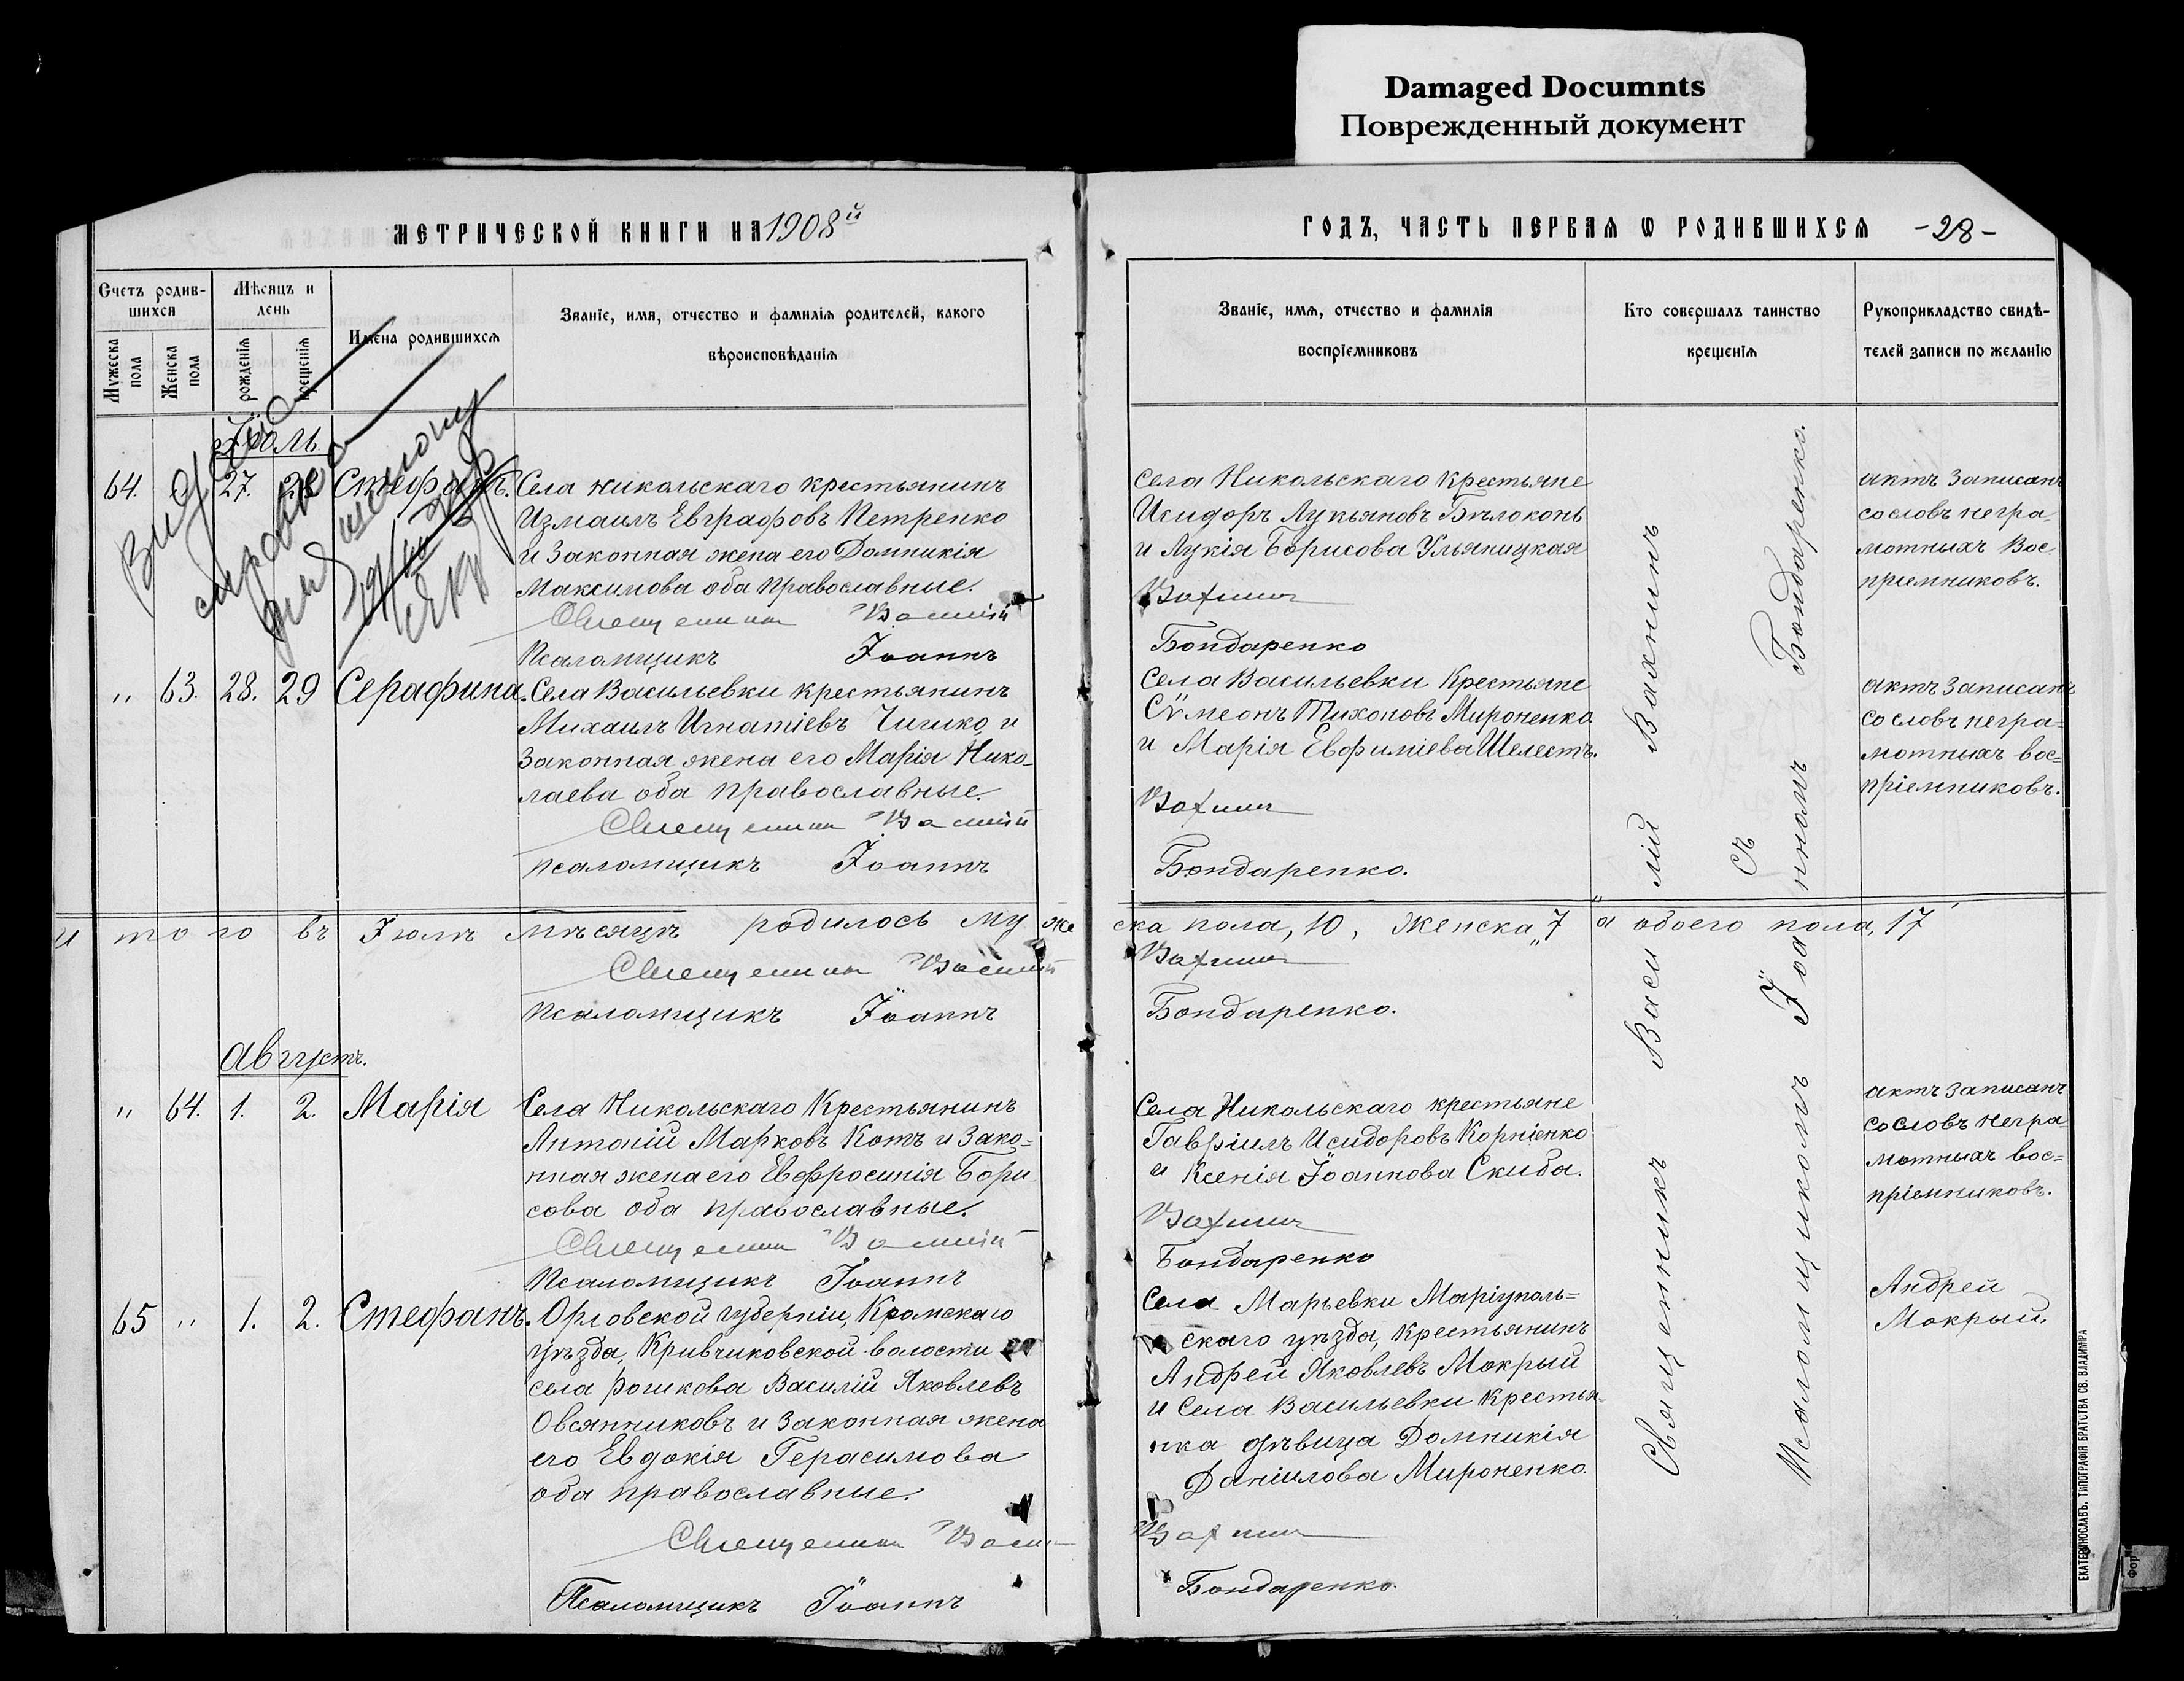 Damaged Documnts
Поврежденный документ
МЕТРИЧЕСКОЙ КНИГИ НА 1908й
ГОДЪ, ЧАСТЬ ПЕРВАЯ Ѡ РОДИВШИХСЯ -28-
Счетъ родив-
шихся
Мужеска пола
Женска пола
Мѣсяцъ и
день
рожденія
крещенія
Имена родившихся
Званіе, имя, отчество и фамилія родителей, какого
вѣроисповѣданія
Званіе, имя, отчество и фамилія
воспріемниковъ
Кто совершалъ таинство
крещенія
Рукоприкладство свидѣ-
телей записи по желанію
Іюль
64. 27. 28 Стефанъ.
Села Никольскаго крестьянинъ
Измаилъ Евграфовъ Петренко
и Законная жена его Домникія
Максимова оба Православные.
Священникъ Василій
Псаломщикъ Іоаннъ
Села Никольскаго Крестьяне
Исидоръ Лукьяновъ Бѣлоконь
и Лукія Борисова Ульяницкая
Вахнинъ
Бондаренко
актъ Записанъ
со словъ негра-
мотныхъ Вос
пріемниковъ.
" 63. 28. 29 Серафима.
Села Васильевки крестьянинъ
Михаилъ Игнатіевъ Чигико и
Законная жена его Марія Нико-
лаева оба православные.
Священникъ Василій
Псаломщикъ Іоаннъ
Села Васильевки Крестьяне
Сѵмеонъ Тихоновъ Мироненко
и Марія Евфиміева Шелестъ.
Вахнинъ
Бондаренко.
актъ Записанъ
со словъ негра=
мотныхъ вос=
пріемниковъ.
Итого въ Іюлѣ мѣсяцѣ родилось муже ска пола, 10, Женска „7 а обоего пола, 17
Священникъ Василій
Вахнинъ
Псаломщикъ Іоаннъ
Бондаренко.
Августъ.
" 64. 1. 2. Марія
Села Никольскаго Крестьянинъ
Антоній Марковъ Котъ и Зако=
нная жена его Евфросинія Бори
сова оба православные.
Священникъ Василій
Псаломщикъ Іоаннъ
Села Никольскаго крестьяне
Гавріилъ Исидоровъ Корніенко
и Ксенія Іоаннова Скиба.
Вахнинъ
Бондаренко
актъ Записанъ
со словъ негра
мотныхъ вос=
пріемниковъ.
65 " 1. 2. Стефанъ.
Орловской губерніи, Кромскаго
уѣзда, Кривчиковской волости
села Рошкова Василій Яковлевъ
Овсянниковъ и Законная жена
его Евдокія Герасимова
оба православные.
Священникъ Васи
Псаломщикъ Іоаннъ
Села Марьевки Маріуполь=
скаго уѣзда, Крестьянинъ
Андрей Яковлевъ Мокрый
и Села Васильевки Крестья-
нка дѣвица Домникія
Даніилова Мироненко.
Вахнинъ
Бондаренко.
Андрей
Мокрый.
Священникъ Василій Вахнинъ
съ
Псаломщикомъ Іоанномъ Бондаренко.
ЕКАТЕРИНОСЛАВЪ. ТИПОГРАФІЯ БРАТСТВА СВ. ВЛАДИМІРА